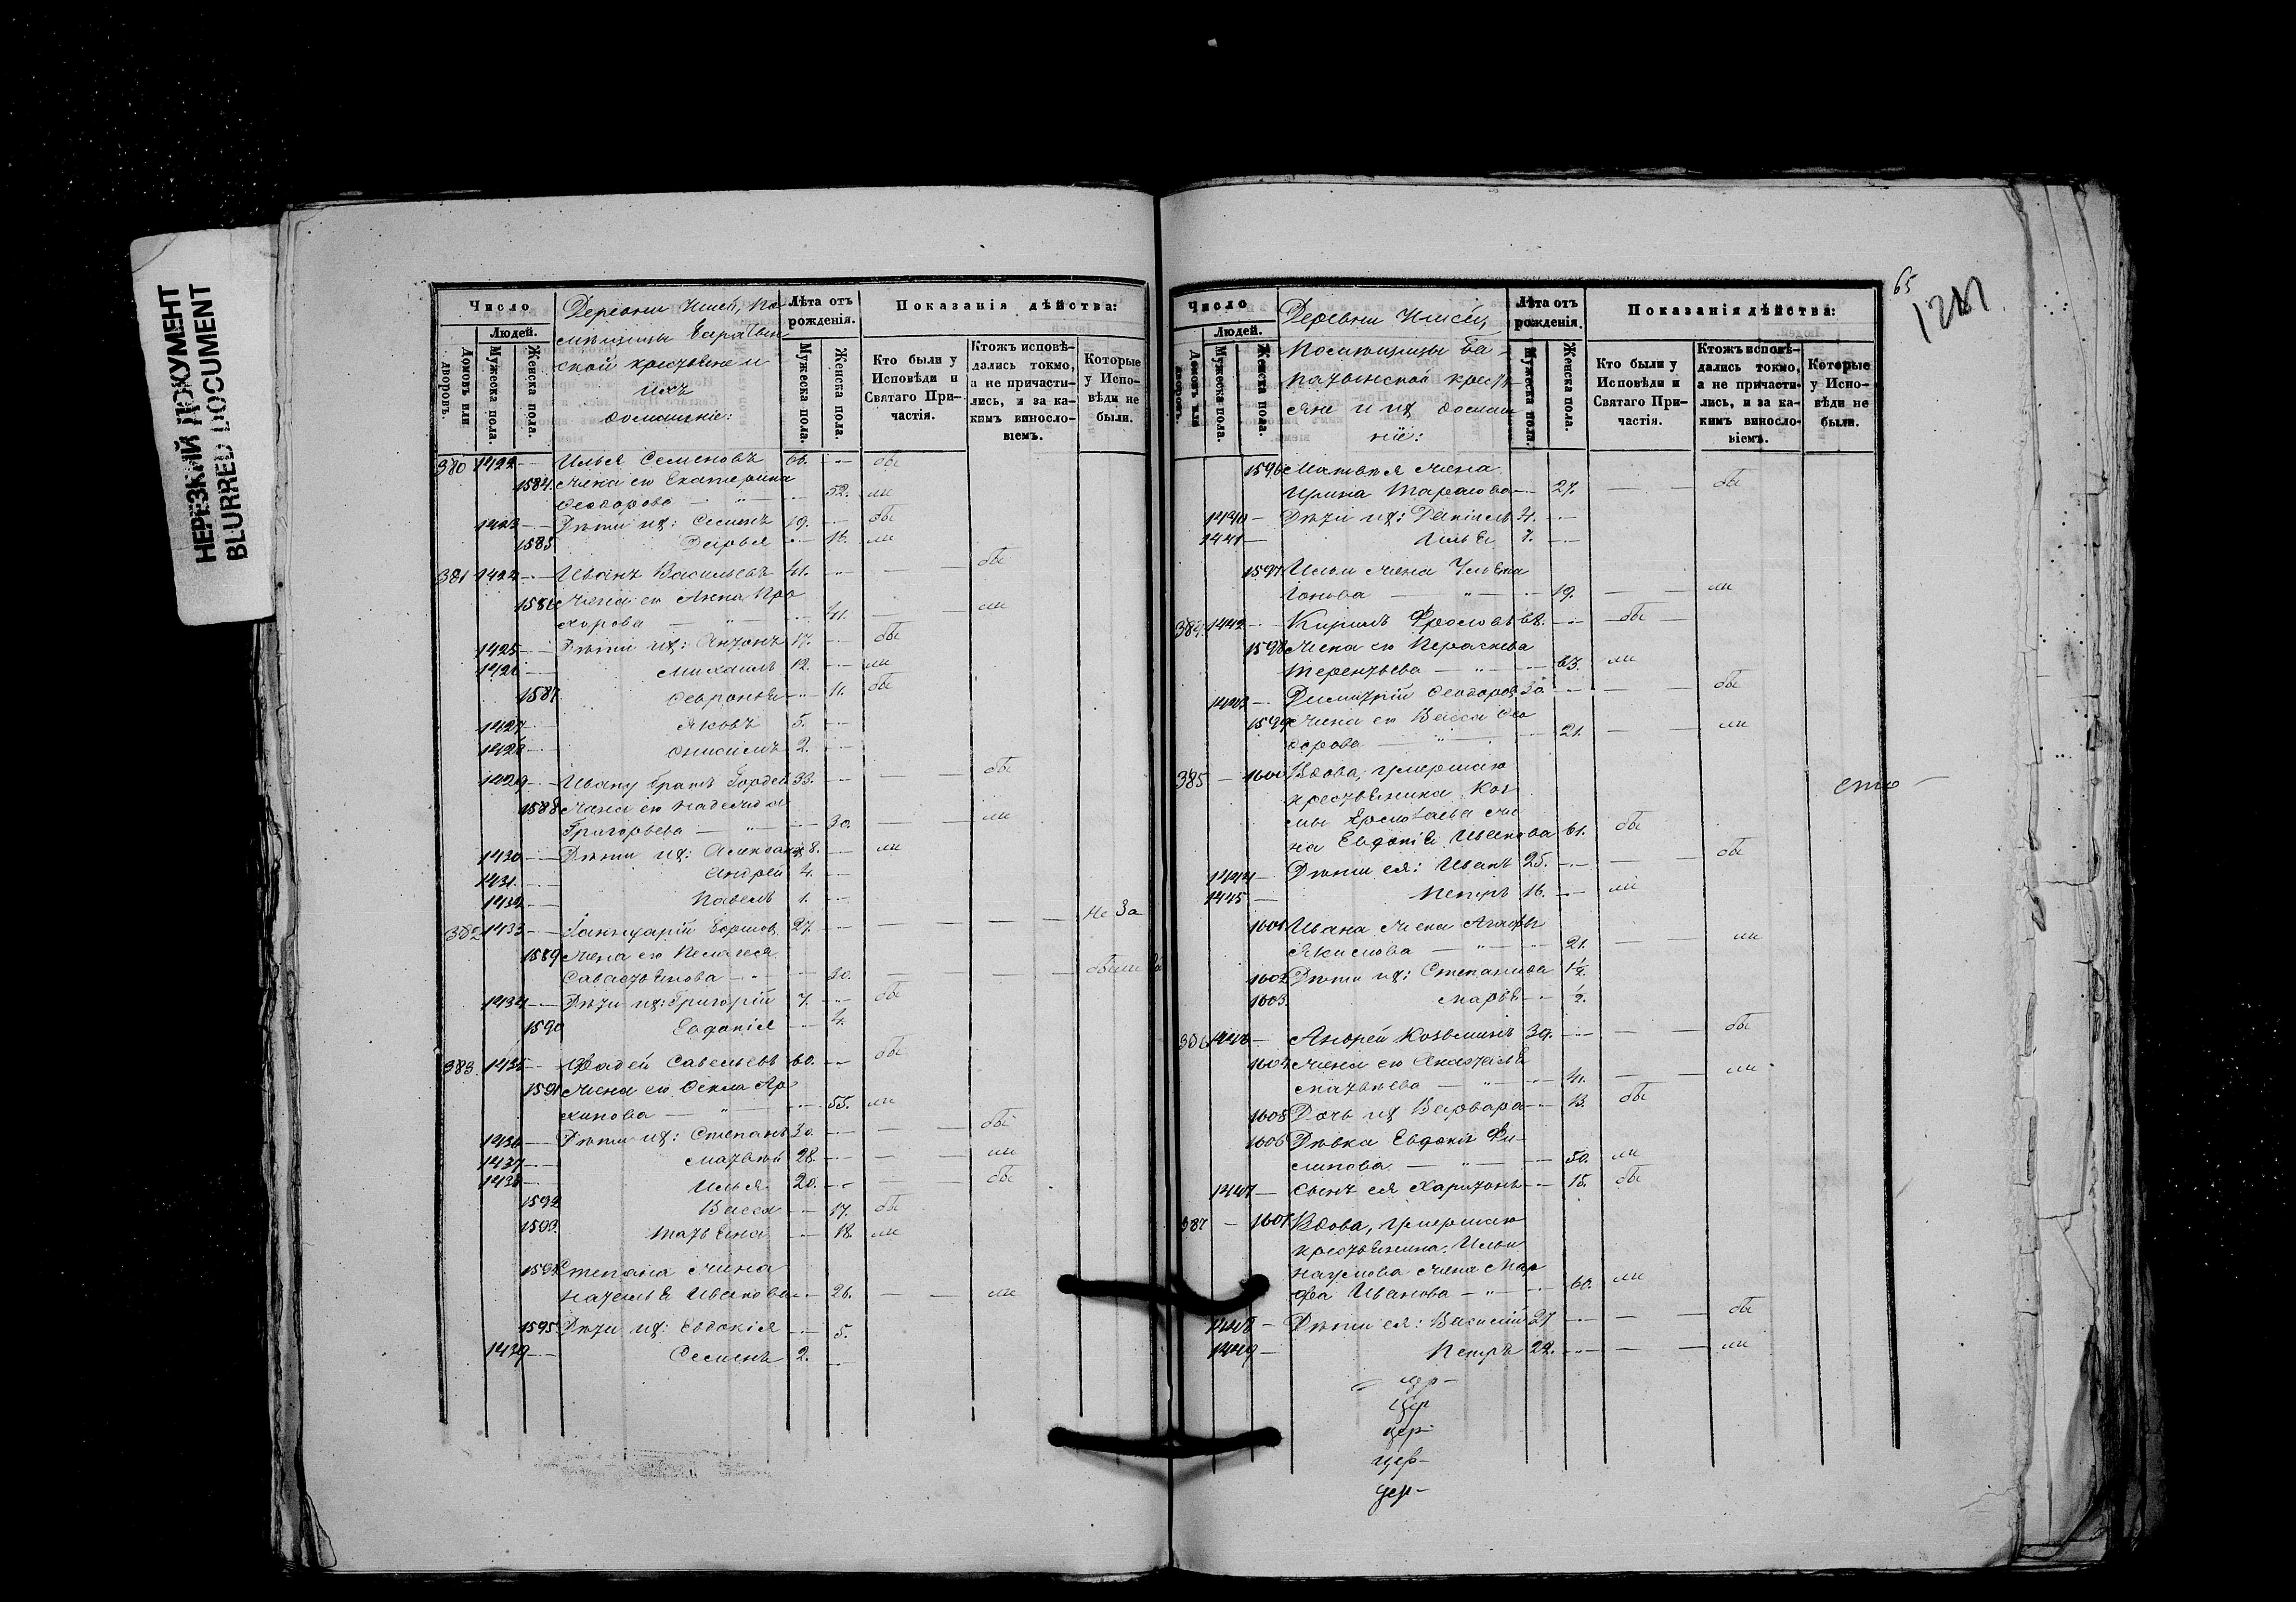 НЕРЕЗКИЙ ДОКУМЕНТ
BLURRED DOCUMENT
Число
Людей.
Домовъ или дворовъ.
Мужеска пола.
Женска пола.
Деревни
крестьяне и
ихъ
домашніе:
Лѣта отъ рожденія.
Мужеска пола.
Женска пола.
Показанія дѣйства:
Кто были у Исповѣди и Святаго Причастія.
Ктожъ исповѣдались токмо, а не причастились, и за какимъ винословіемъ.
Которые у Исповѣди не были.
380 1422 Илья Семеновъ 66. бы
1584. Жена его Екатерина
Феодорова 52. ли
1423 Дѣти их: Семенъ 19. бы
1585 Дарья 16. ли
381 1424 Иванъ Васильевъ 41. бы
1586 Жена его Анна Про
хорова 41. ли
1425 Дѣти их: Антонъ 17. бы
1426 Михаилъ 12. ли
1587 Февронья 11. бы
1427 Яковъ 5.
1428 Онисимъ 2.
1429 Ивану братъ Гордей 33. бы
1588 Жена его Надежда
Григорьева 30. ли
1430 Дѣти их: Александръ 8. ли
1431 Андрей 4.
1432 Павелъ 1.
382 1433 27. Не За
1589 Жена его Пелагея
Савастьянова 30.
1434 Дѣти их: Григорій 7. бы
1590 Евдокія 4.
383 1435 Фадей Савельевъ 60. бы
1591 Жена его Фекла Ар
хипова 55. ли
1436 Дѣти их: Степанъ 30. бы
1437 Матвѣй 28. ли
1438 Илья 20. бы
1592 Васса 17. бы
1593 Татьяна 18. ли
1594 Степана жена
Наталья Иванова 26. ли
1595 Дѣти их: Евдокія 5.
1439 Семенъ 2.
65
Число
Людей.
Домовъ или дворовъ.
Мужеска пола.
Женска пола.
Деревни
Помѣщицы Ба
крестья
яне и их домаш
ніе:
Лѣта отъ рожденія.
Мужеска пола.
Женска пола.
Показанія дѣйства:
Кто были у Исповѣди и Святаго Причастія.
Ктожъ исповѣдались токмо, а не причастились, и за какимъ винословіемъ.
Которые у Исповѣди не были.
1596 Матвѣя жена
Ирина Тарасова 27. бы
1440 Дѣти их: Даніилъ 4.
1441 Илья 7.
1597 Ильи жена Ульяна
Іонова 19. ли
384 1442 Кирилъ 68. бы
1598 Жена его Пераскева
Терентьева 63. ли
1443 Димитрій Феодоров 30. бы
1599 Жена его Васса Фео
дорова 21. ли
385 1600 Вдова, умершаго
крестьянина Коз
мы жена
Евдокія Иванова 61. бы
1444 Дѣти ея: Иванъ 25. бы
1445 Петръ 16. ли
1601 Ивана жена Агафья
Якимова 21. ли
1602 Дѣти их: Степанида 1½.
1603 Марья ½.
386 1446 Андрей Козьминъ 39. бы
1604 Жена его Анастасья
Матвѣева 41. ли
1605 Дочь их Варвара 13. бы
1606 Дѣвка Евдокія Фи
липова 50. ли
1447 Сынъ ея Харитонъ 15. бы
387 1607 Вдова, умершаго
крестьянина Ильи
Наумова жена Мар
фа Иванова 60. ли
1448 Дѣти ея: Василій 27 бы
1449 Петръ 22. ли